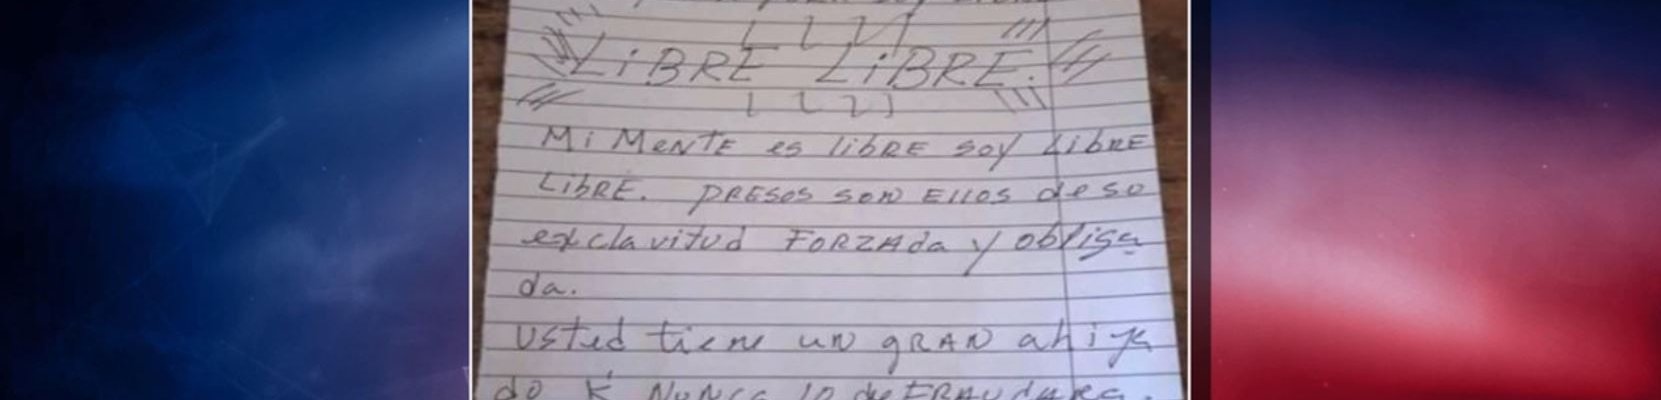 LiBRE LiBRE.
Mi MeNTE es libRE soy LibRE
LibRE. PRESOS SON EllOS de so
exclavitud FORZAda y obliga
da.
usted tiene un gRAN ahija
do K NuNca lo deFRAudARa.